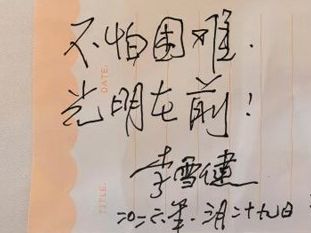 不怕困难.
光明在前!
李雪健
二〇二六年.三月二十九日
DATE.
TITLE.